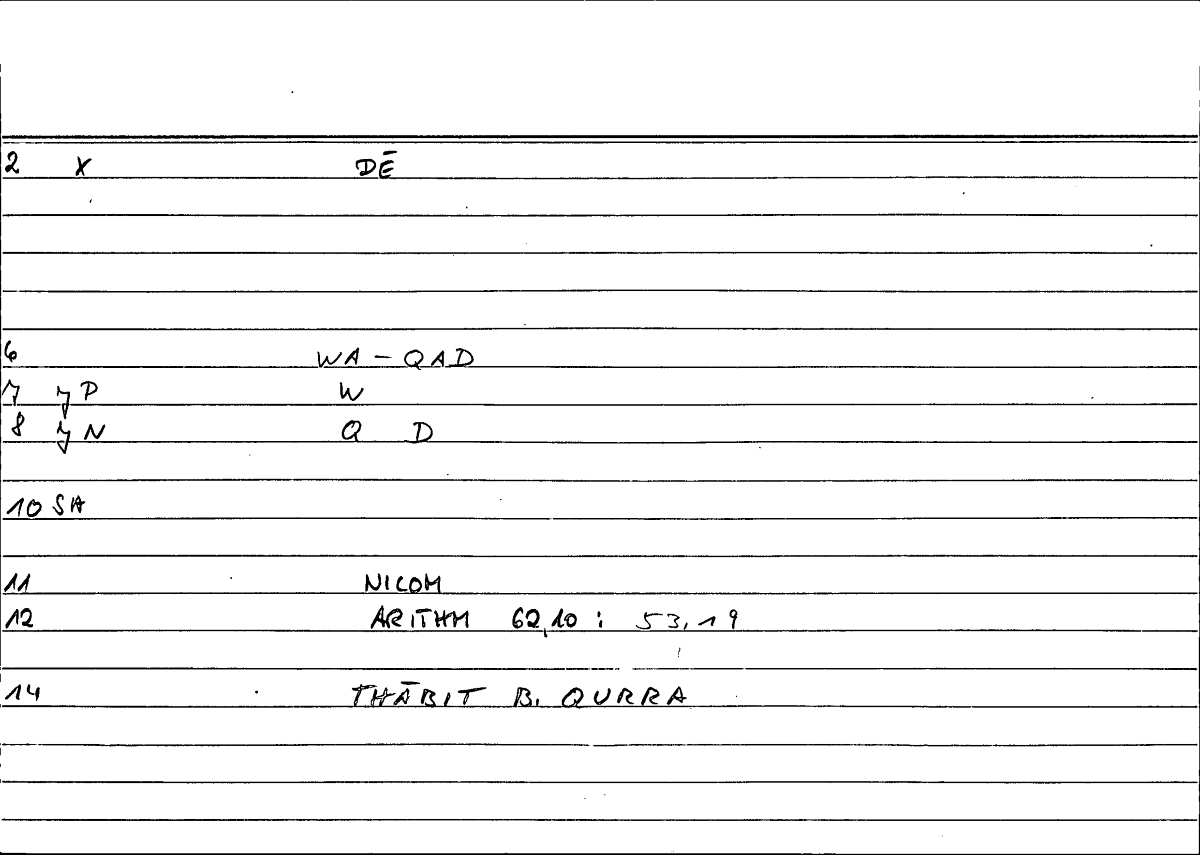 2 X DĒ
6 WA - QAD
7 γP W
8 γN Q D
10 SA
11 NICOM
12 ARITHM 62,10 : 53,19
14 THĀBIT B. QURRA